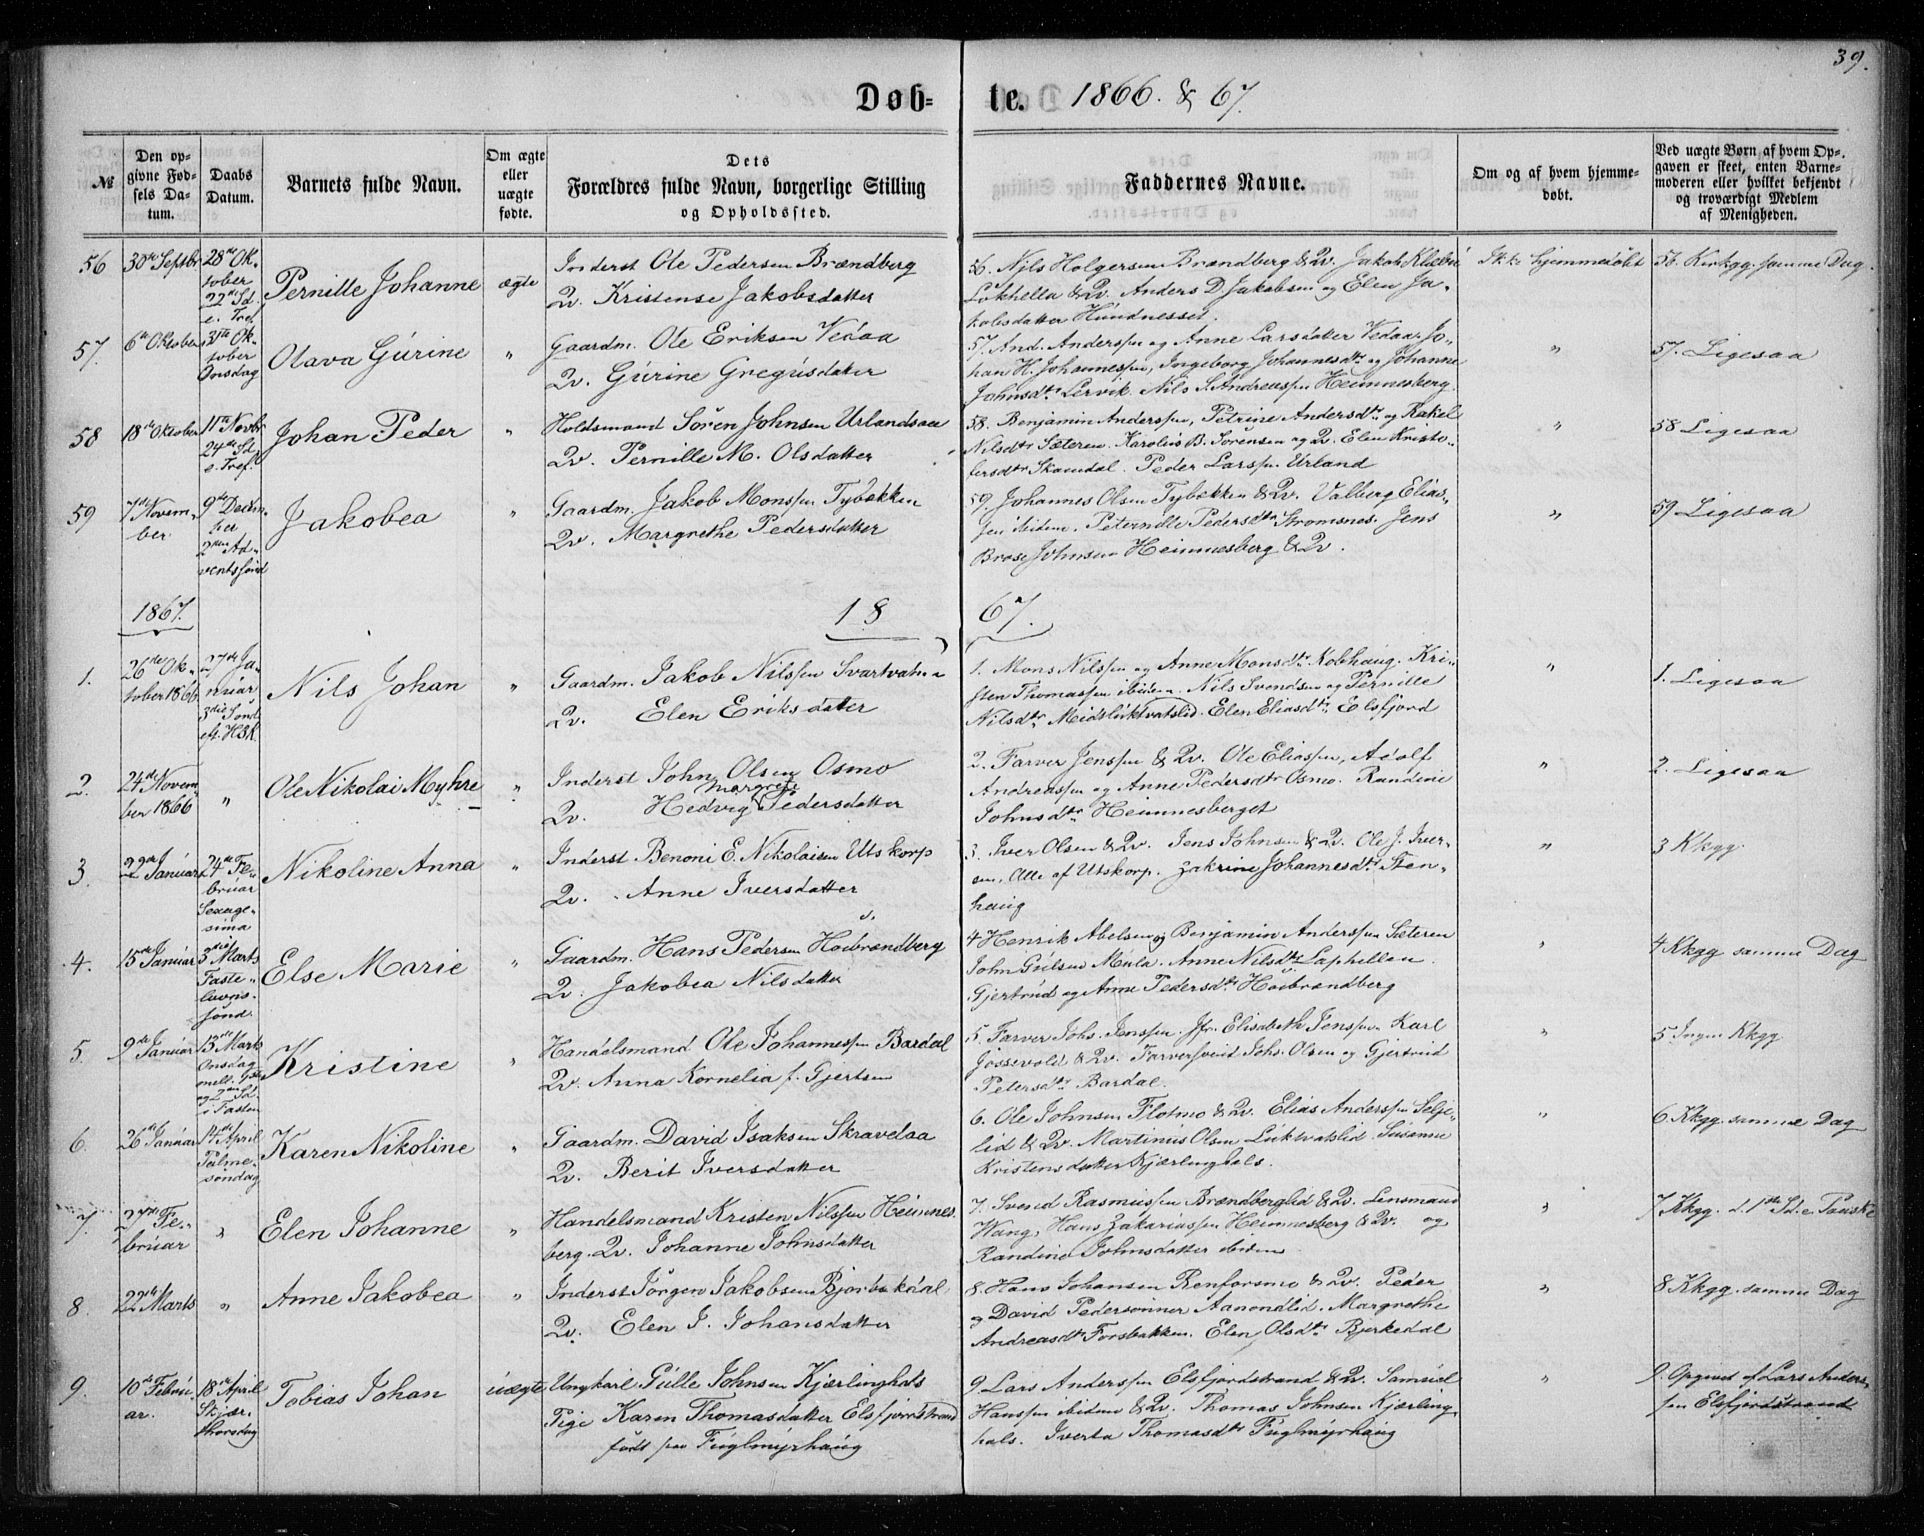 39.
Døb-te. 1866. & 67.
№
Den op-
givne Fød-
sels Da-
tum.
Daabs
Datum.
Barnets fulde Navn.
Om ægte
eller
uægte
fødte.
Dets
Forældres fulde Navn, borgerlige Stilling
og Opholdssted.
Faddernes Navne.
Om og af hvem hjemme-
døbt.
Ved uægte Børn af hvem Op-
gaven er skeet, enten Barne-
moderen eller hvilket bekjendt
og troværdigt Medlem
af Menigheden.
56 30te Septbr 28de Ok-
tober
22de Sd.
e. Tref.
Pernille Johanne ægte
Inderst Ole Pedersen Brændberg
Qv. Kristense Jakobsdatter
56. Nils Holgersen Brændberg & Qv. Jakob
& Qv. Anders D. Jakobsen og Elen Ja-
kobsdatter Hundnesset.
Ikke hjemmedøbt
56. Kirkgg. samme Dag
57. 6te Oktober 31te Ok-
tober
Onsdag
Olava Gurine "
Gaardm. Ole Eriksen Vedaa
Qv. Gurine Gregusdatter
57. And. Anderssen og Anne Larsdatter Vedaa. Jo-
han H. Johannessen, Ingeborg Johannesdtr og Johanne
Johnsdtr Lervik. Nils S. Andreassen Heimnesberg.
"
57. Ligesaa
58 18de Oktober 11te Novbr
24de Sd.
e. Tref.
Johan Peder "
Holdsmand Sören Johnsen Urlandsaae
Qv. Pernille M. Olsdatter
58. Benjamin Anderssen, Petrine Andersdtr og Rakel
Nilsdtr Sæteren. Karolius B. Sörensen og Qv. Elen Kristo-
fersdtr Skamdal. Peder Larssen Urland
"
58 Ligesaa
59 7de Novem-
ber 9de Decem-
ber
2den Ad-
ventssönd
Jakobea "
Gaardm. Jakob Monssen Tybækken
Qv. Margrethe Pedersdatter
59. Johannes Olsen Tybækken & Qv. Valberg Elias-
sen ibidem. Peternille Pedersdtr Stromsnes. Jens
Brose Johnsen Heimnesberg & Qv.
"
59 Ligesaa
1867.
18 67.
1. 26de Ok-
tober 1866 27de Ja-
nuar
3die Sönd.
eft. H3K.
Nils Johan "
Gaardm. Jakob Nilssen Svartvatn
Qv. Elen Eriksdatter
1. Mons Nilssen og Anne Monsdtr Nobhaug. Kri-
sten Thomassen ibidem. Nils Svendsen og Pernille
Nilsdtr Midsluktvatslid. Elen Eliasdtr Elsfjord
"
1. Ligesaa
2. 24de Novem
ber 1866 "
Ole Nikolai Myhre "
Inderst John Olsen Osmo
Margrete
Qv. Hedvig Pedersdatter
2. Farver Jenssen & Qv. Ole Eliassen,
Andreassen og Anne Pedersdtr Osmo. Randine
Johnsdtr Heimnesberget
"
2. Ligesaa
3. 22de Januar 24de Fe-
bruar
Sexage-
sima
Nikoline Anna "
Inderst Benoni E. Nikolaisen Utskorp
Qv. Anne Iversdatter
3. Iver Olsen & Qv. Jens Johnsen & Qv. Ole J. Iver-
sen. Alle af Utskorp. Zakrine Johannesdtr Sten-
haug
"
3 Kkgg.
4. 15de Januar 3die Marts
Faste-
lavns-
sönd.
Else Marie "
Gaardm. Hans Pedersen Höibrændberg
Qv. Jakobea Nilsdatter
4 Henrik Abelsen og Benjamin Anderssen Sæteren
John Mula. Anne Nilsdtr Laphellen.
Gjertrud og Anne Pedersdtr Höibrændberg
"
4 Kkgg samme Dag
5. 9de Januar 13de Marts
Onsdag
mell. 1ste
og 2den Sd.
i Fasten
Kristine "
Handelsmand Ole Johannessen Bardal
Qv. Anna Kornelia f. Gjertsen
5. Farver Johs. Jenssen. Jfr. Elisabeth Jenssen. Karl
Jössevold & Qv. Farversvend Johs. Olsen og Gjertrud
Petersdtr Bardal.
"
5 Ingen Kkgg
6. 26de Januar 14de April
Palme-
söndag
Karen Nikoline "
Gaardm. David Isaksen Skravelaa
Qv. Berit Iversdatter
6. Ole Johnsen Flotmo & Qv. Elias Anderssen Selje-
lid & Qv. Martinus Olsen Luktvatslid. Susanne
Kristensdatter Kjærlinghals.
"
6. Kkgg. samme Dag
7. 27de Fe-
bruar "
Elen Johanne "
Handelsmand Kristen Nilssen Heimnes-
berg. Qv. Johanne Johnsdatter
7. Svend Rasmussen Brændberglid & Qv. Lensmand
Wang, Hans Zakariassen Heimnesberg & Qv. og
Randine Johnsdatter ibidem
"
7 Kkgg. d. 1ste Sd. e. Paaske
8. 22de Marts "
Anne Jakobea "
Inderst Jörgen Jakobsen Bjerkedal
Qv. Elen J. Johansdatter
8. Hans Johansen Renforsmo & Qv. Peder
og David Pedersönner Aanondlid. Margrethe
Andreasdtr Forsbakken. Elen Olsdtr Bjerkedal
"
8 Kkgg. samme Dag
9. 10de Febru-
ar. 18de April
Skjær-
thorsdag
Tobias Johan uægte
Ungkarl Gulle Johnsen Kjærlinghals
Pige Karen Thomasdatter Elsfjordstrand
födt paa Fuglmyrhaug
9. Lars Anderssen Elsfjordstrand & Qv. Samuel
Hanssen ibidem & Qv. Thomas Johnsen Kjærling-
hals. Iverta Thomasdtr Fuglmyrhaug
"
9. Opgivet af Lars Anders-
sen Elsfjordstrand